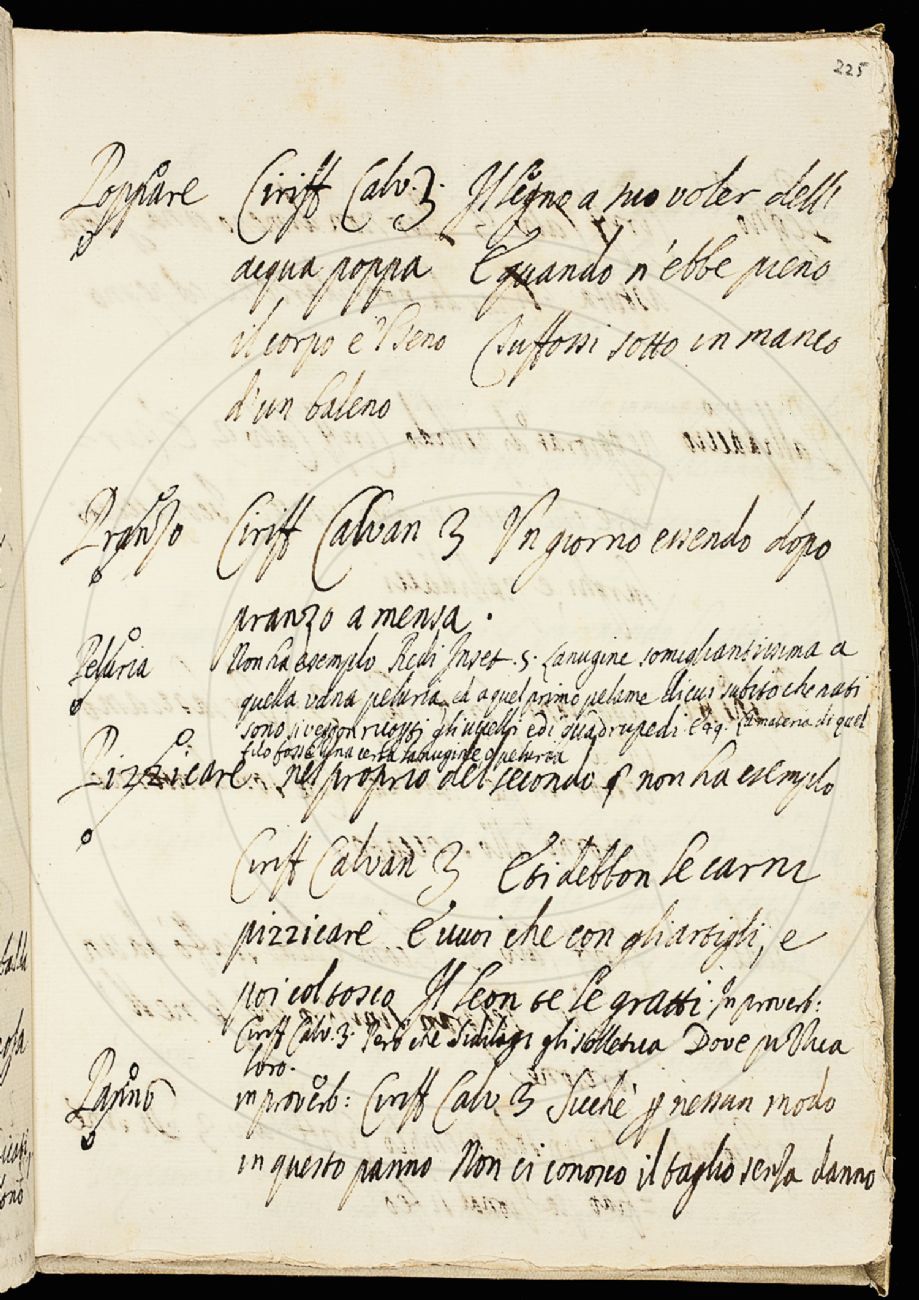 225
Poppare Ciriff Calv. 3. Il legno a suo voler dell
acqua poppa E quando n'ebbe pieno
il corpo e 'l seno Tuffossi sotto in manco
d'un baleno
Pranzo Ciriff Calvan 3 Un giorno essendo dopo
pranzo a mensa.
Peluria Non ha esempio. Redi Inset. 5. Lanugine somigliantissima a
quella vana peluria, ed a quel primo pelame di cui subito che nati
sono si veggon ricoperti gli uccelli ed i quadrupedi. E 99. La materia di quel
filo fosse una certa lanugine o peluria
Pizzicare nel proprio del secondo § non ha esempio
Ciriff Calvan 3 E ti debbon le carni
pizzicare E vuoi che con gli artigli, e
poi col tosco Il leon te le gratti. In proverb:
Ciriff Calv. 3. Però che gli solletica Dove pizzica
loro.
Panno in proverb: Ciriff Calv. 3 Sicchè p nessun modo
in questo panno Non ci conosco il taglio senza danno